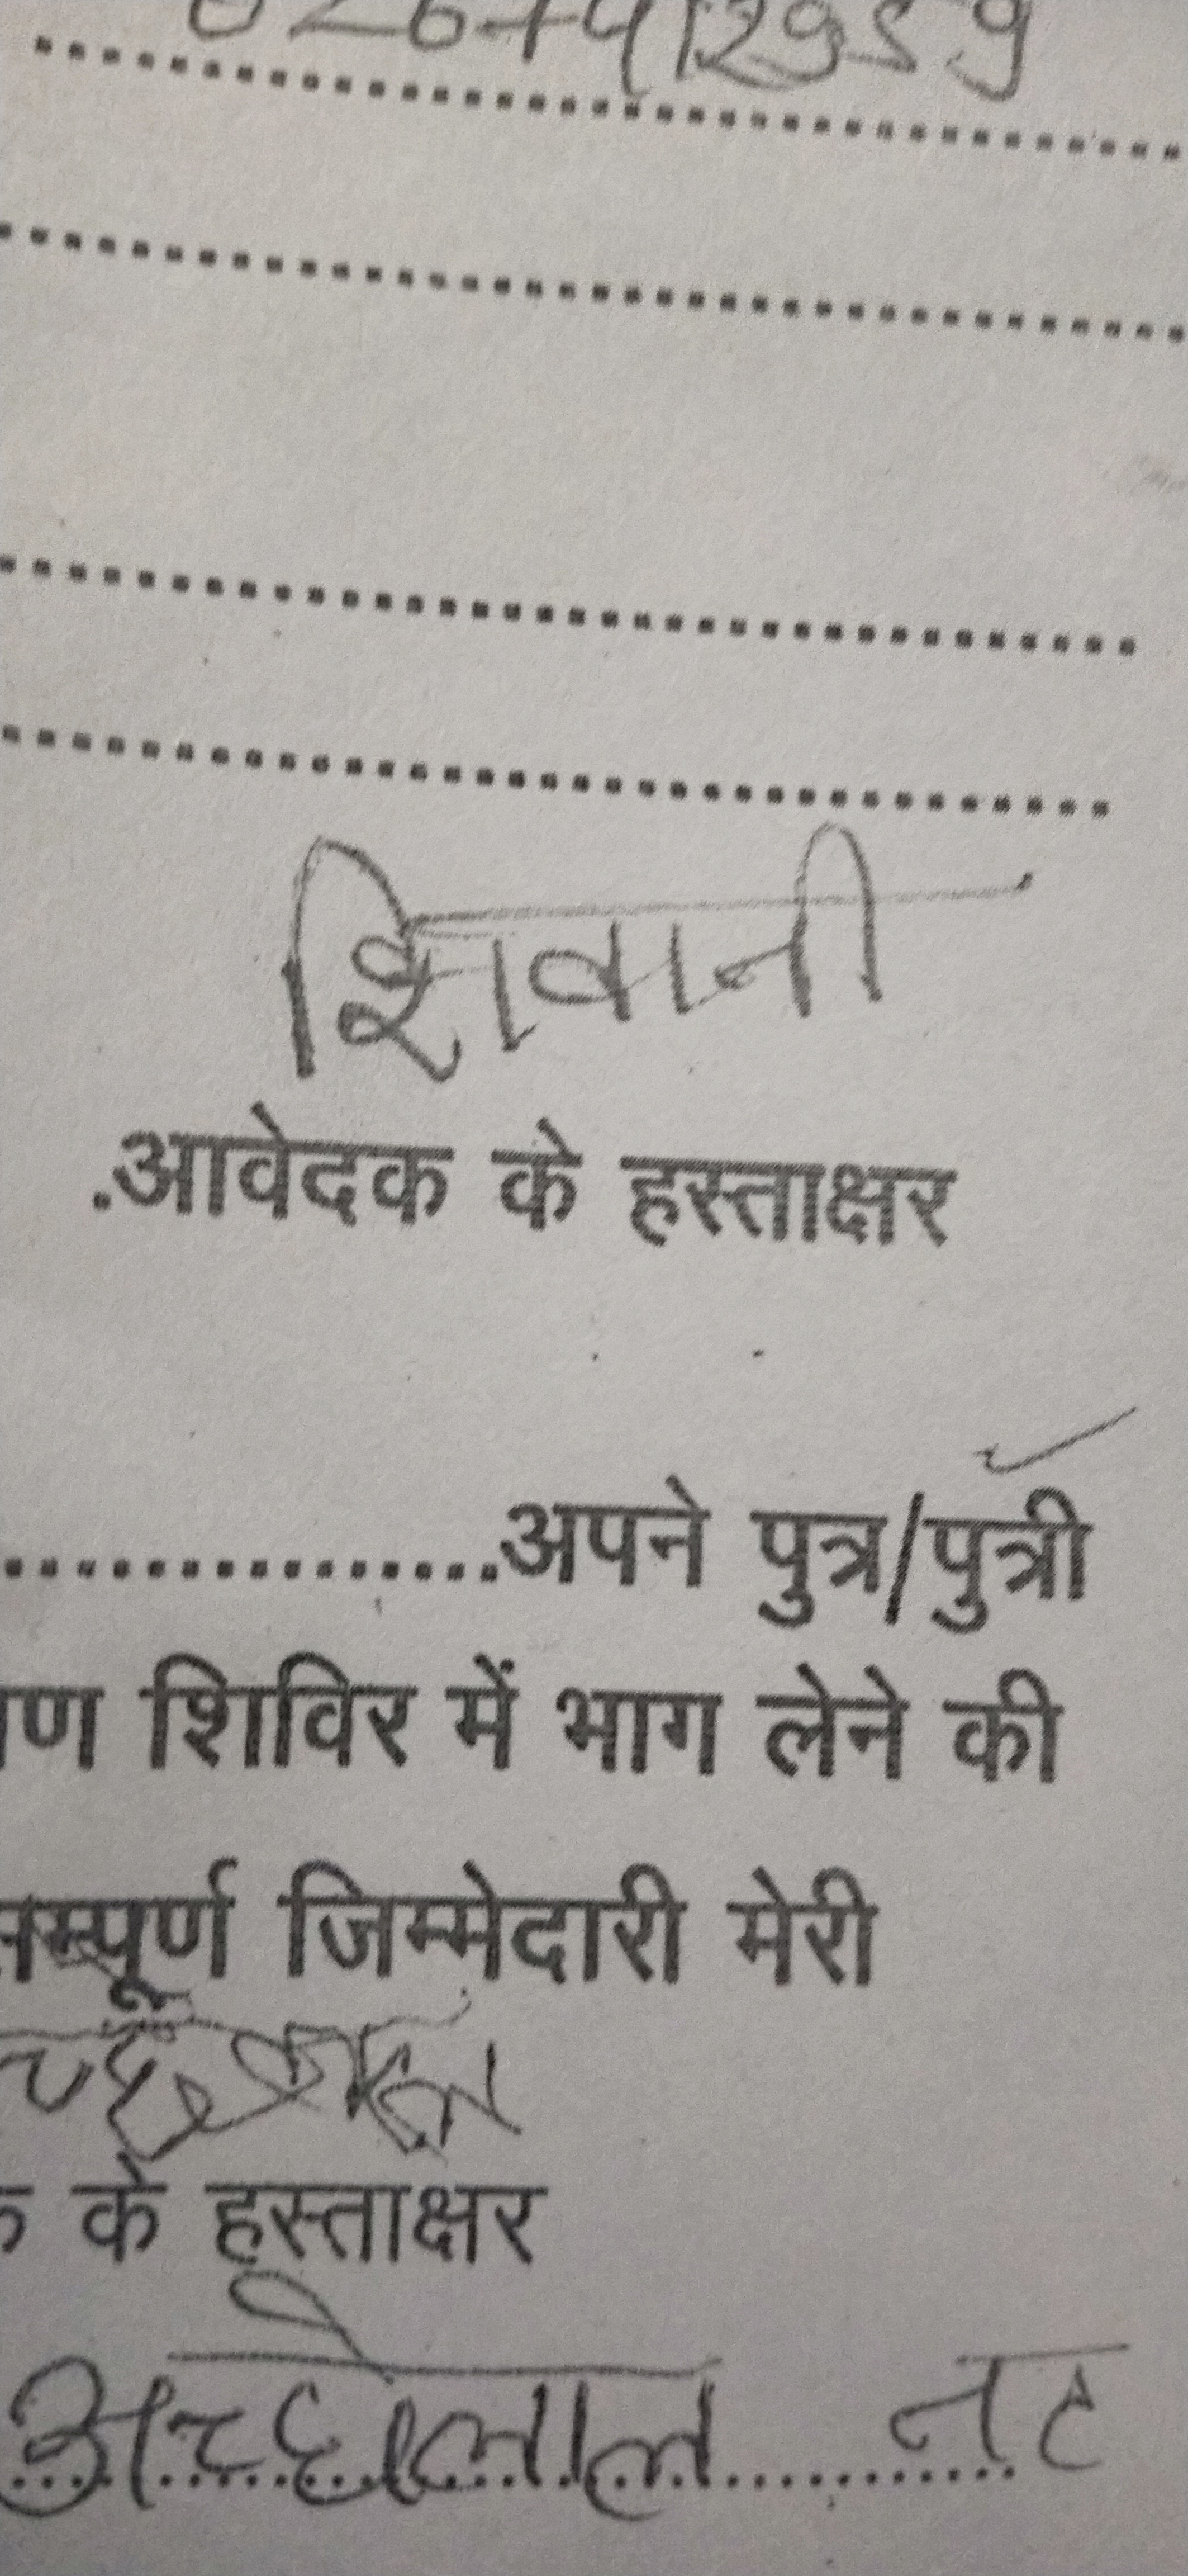 शिवानी
.आवेदक के हस्ताक्षर
................अपने पुत्र/पुत्री
शिविर में भाग लेने की
सम्पूर्ण जिम्मेदारी मेरी
के हस्ताक्षर
अच्छेलाल नट